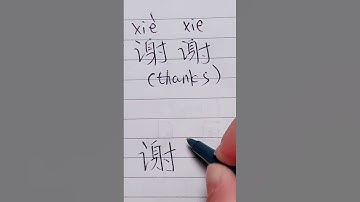 xiè xie
谢谢
(thanks)
谢